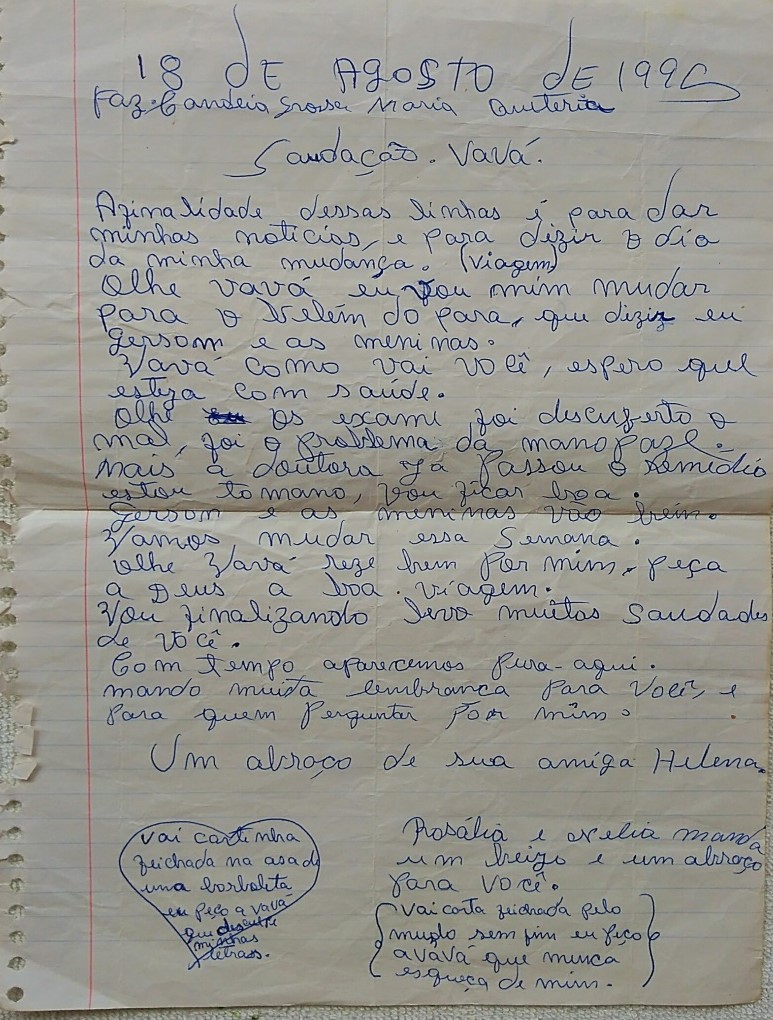 18 DE AGOSTO DE 1996
Faz. Candeia Grosse Maria Quiteria
Saudação. Vavá.
Afinalidade dessas linhas é para dar
minhas noticias, e para dizir o dia
da minha mudança. (Viagem)
Olhe vavá eu vou mim mudar
para o Belém do para, que dizir eu
Gersom e as meninas.
Vavá como vai você, espero que
esteja com saúde.
Olhe os exame foi descuferto o
mal, foi o problema da manopaze.
mais a doutora ja passou o remédio
estou tomano, vou ficar boa.
Gersom e as meninas vão beim.
Vamos mudar essa semana.
olhe Vavá reze bem por mim, peça
a Deus a boa viagem.
Vou finalizando levo muitas saudades
de você.
Com tempo aparecemos pura-aqui.
mando muita lembranca para você, e
para quem perguntar por mim.
Um abraço de sua amiga Helena.
vai cartinha
feichada na asa de
uma borboleta
eu peço a vavá
que desculpe
minhas
letras.
Rosália e Nelia manda
um beizo e um abraço
para você.
vai carta feichada pelo
mundo sem fim eu peço
a vavá que nunca
esqueça de mim.